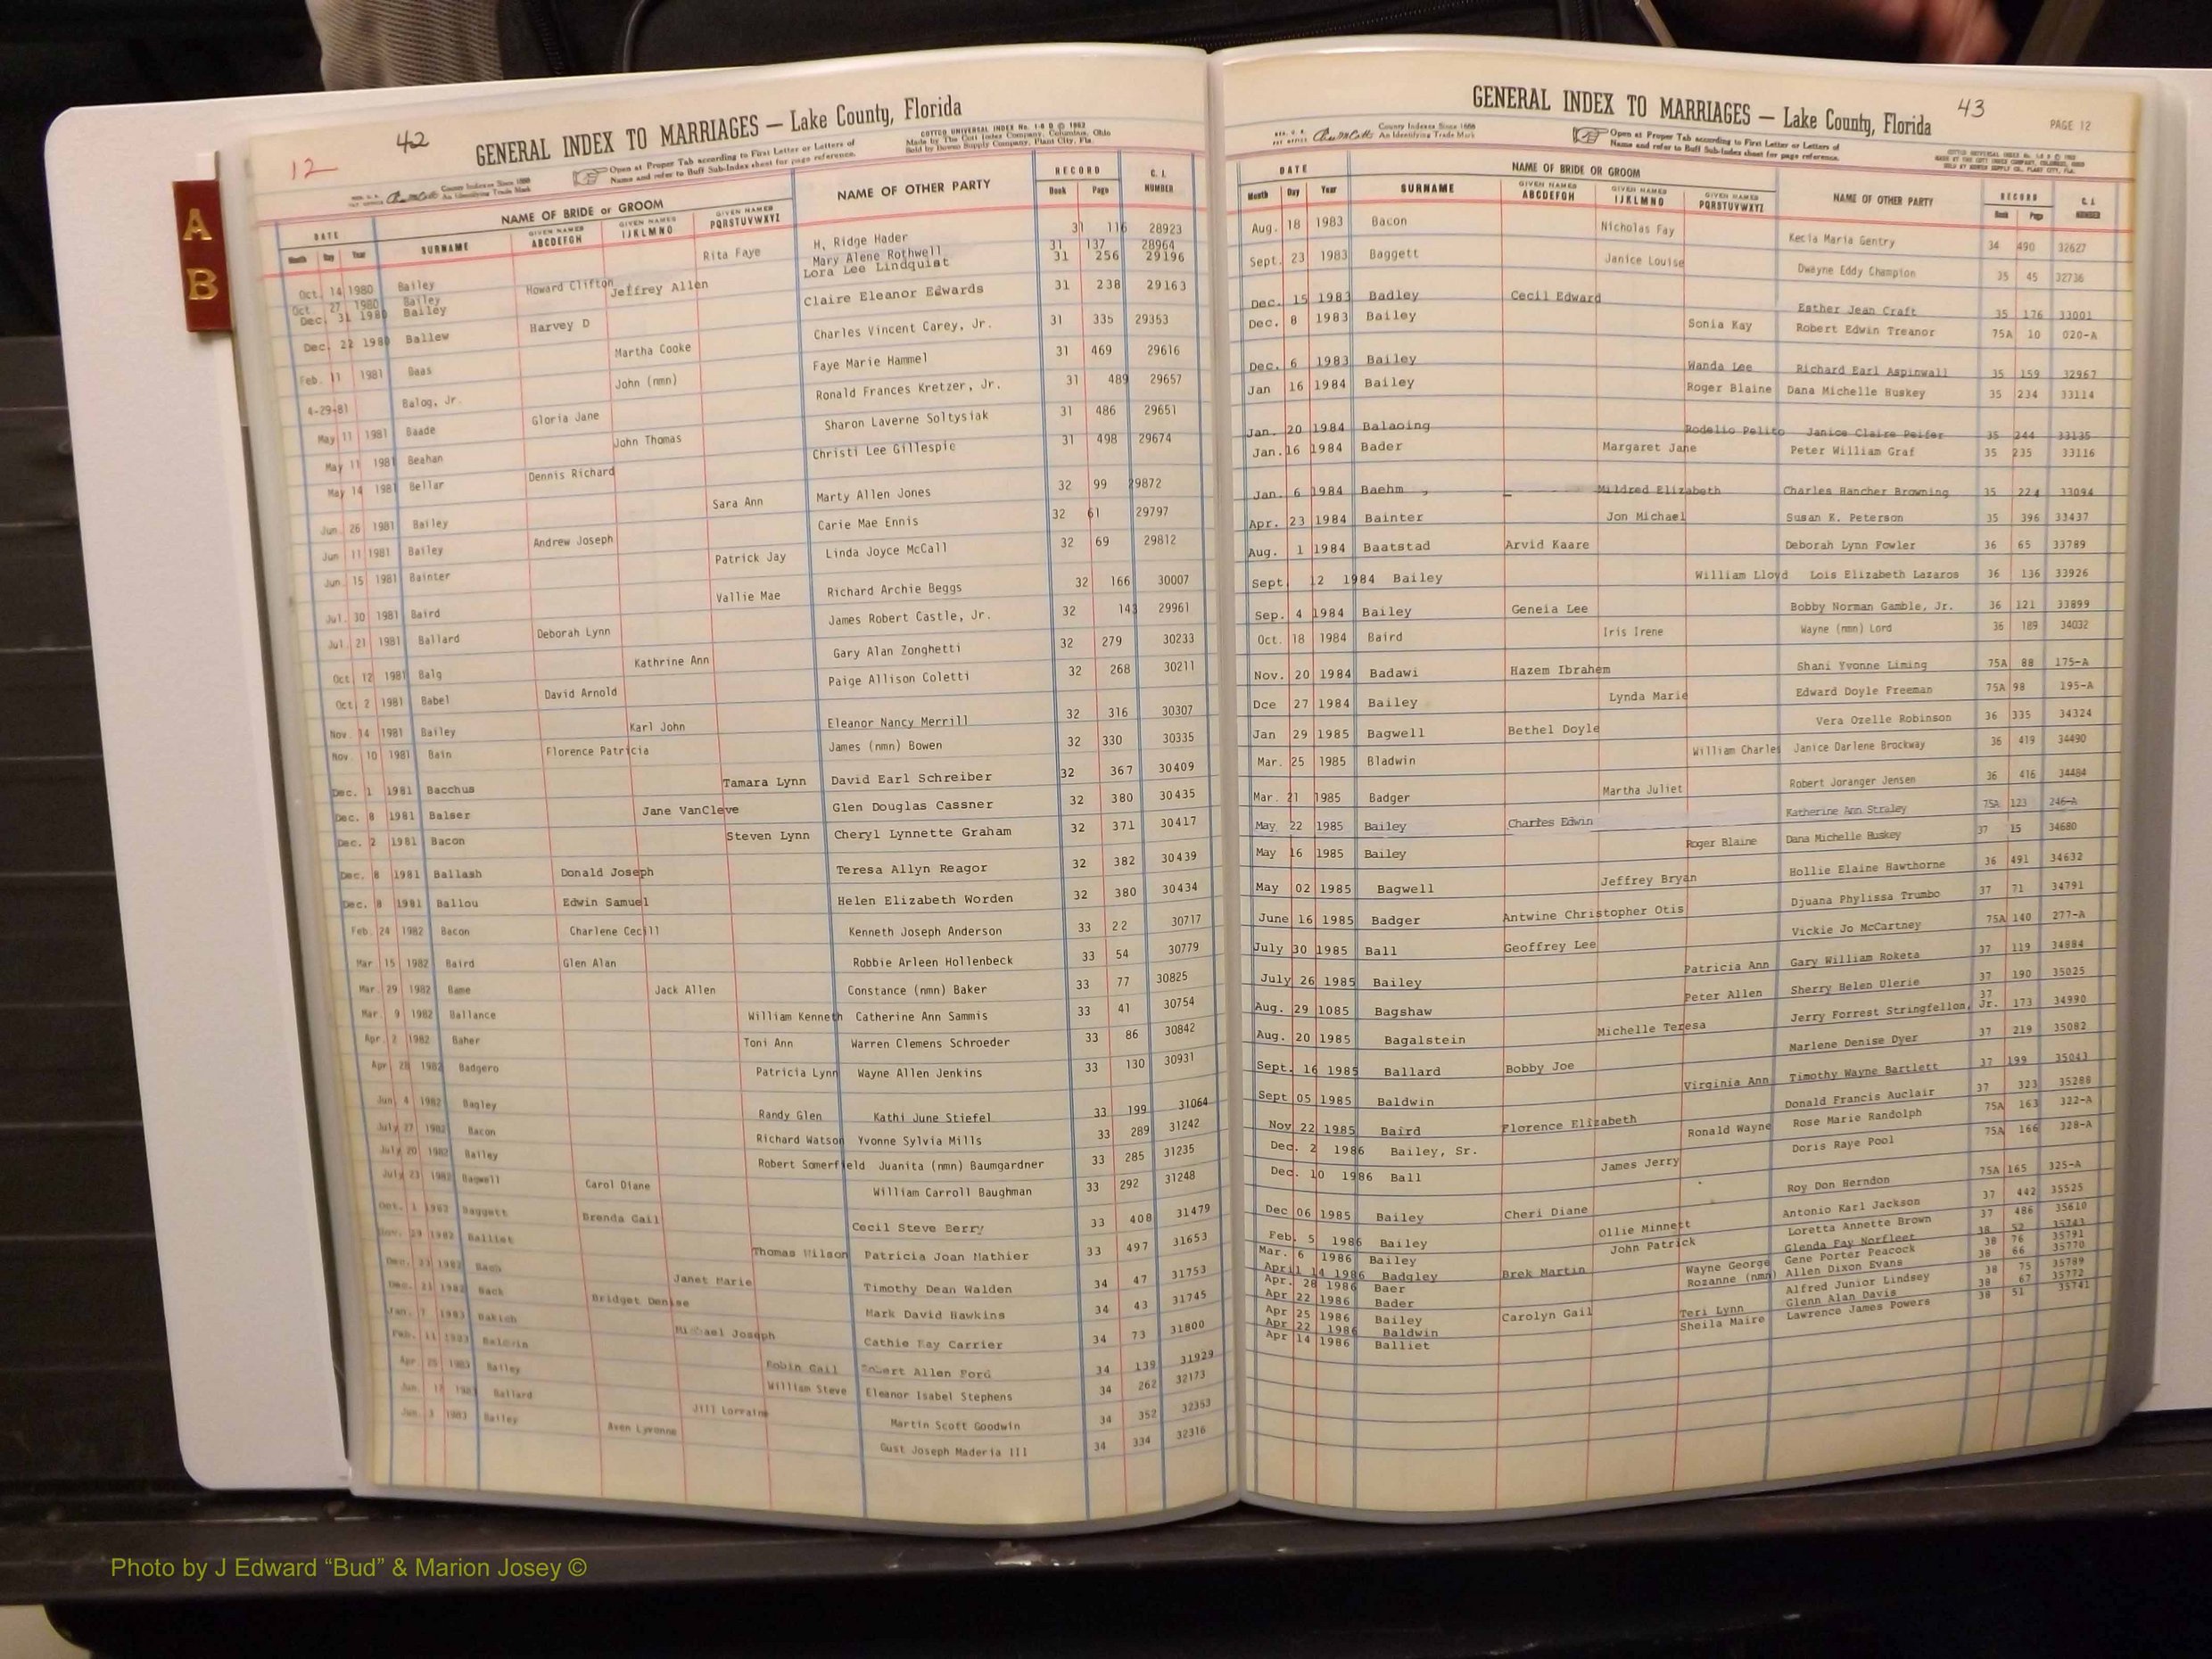 A
B
12
42
GENERAL INDEX TO MARRIAGES — Lake County, Florida
County Indexes Since 1888
An Identifying Trade Mark
Open at Proper Tab according to First Letter or Letters of
Name and refer to Buff Sub-Index sheet for page reference.
COTTCO UNIVERSAL INDEX No. 1-8 D © 1962
Made by The Cott Index Company, Columbus, Ohio
Sold by Dowso Supply Company, Plant City, Fla.
DATE NAME OF BRIDE or GROOM NAME OF OTHER PARTY RECORD C. I. NUMBER
Month Day Year SURNAME GIVEN NAMES ABCDEFGH GIVEN NAMES IJKLMNO GIVEN NAMES PQRSTUVWXYZ Book Page
Oct. 14 1980 Bailey Rita Faye H, Ridge Hader 31 116 28923
Oct 27 1980 Bailey Howard Clifton Mary Alene Rothwell 31 137 28964
Dec. 31 1980 Bailey Jeffrey Allen Lora Lee Lindquist 31 256 29196
Dec. 22 1980 Ballew Harvey D Claire Eleanor Edwards 31 238 29163
Feb. 11 1981 Baas Martha Cooke Charles Vincent Carey, Jr. 31 335 29353
4-29-81 Balog, Jr. John (nmn) Faye Marie Hammel 31 469 29616
May 11 1981 Baade Gloria Jane Ronald Frances Kretzer, Jr. 31 489 29657
May 11 1981 Beahan John Thomas Sharon Laverne Soltysiak 31 486 29651
May 14 1981 Bellar Dennis Richard Christi Lee Gillespie 31 498 29674
Jun. 26 1981 Bailey Sara Ann Marty Allen Jones 32 99 29872
Jun 11 1981 Bailey Andrew Joseph Carie Mae Ennis 32 61 29797
Jun. 15 1981 Bainter Patrick Jay Linda Joyce McCall 32 69 29812
Jul. 30 1981 Baird Vallie Mae Richard Archie Beggs 32 166 30007
Jul. 21 1981 Ballard Deborah Lynn James Robert Castle, Jr. 32 143 29961
Oct. 12 1981 Balg Kathrine Ann Gary Alan Zonghetti 32 279 30233
Oct. 2 1981 Babel David Arnold Paige Allison Coletti 32 268 30211
Nov. 14 1981 Bailey Karl John Eleanor Nancy Merrill 32 316 30307
Nov. 10 1981 Bain Florence Patricia James (nmn) Bowen 32 330 30335
Dec. 1 1981 Bacchus Tamara Lynn David Earl Schreiber 32 367 30409
Dec. 8 1981 Balser Jane VanCleve Glen Douglas Cassner 32 380 30435
Dec. 2 1981 Bacon Steven Lynn Cheryl Lynnette Graham 32 371 30417
Dec. 8 1981 Ballash Donald Joseph Teresa Allyn Reagor 32 382 30439
Dec. 8 1981 Ballou Edwin Samuel Helen Elizabeth Worden 32 380 30434
Feb. 24 1982 Bacon Charlene Cecill Kenneth Joseph Anderson 33 22 30717
Mar 15 1982 Baird Glen Alan Robbie Arleen Hollenbeck 33 54 30779
Mar. 29 1982 Bame Jack Allen Constance (nmn) Baker 33 77 30825
Mar. 9 1982 Ballance William Kenneth Catherine Ann Sammis 33 41 30754
Apr 2 1982 Baher Toni Ann Warren Clemens Schroeder 33 86 30842
Apr. 28 1982 Badgero Patricia Lynn Wayne Allen Jenkins 33 130 30931
Jun 4 1982 Bagley Randy Glen Kathi June Stiefel 33 199 31064
July 27 1982 Bacon Richard Watson Yvonne Sylvia Mills 33 289 31242
July 20 1982 Bailey Robert Somerfield Juanita (nmn) Baumgardner 33 285 31235
July 23 1982 Bagwell Carol Diane William Carroll Baughman 33 292 31248
Oct. 1 1982 Baggett Brenda Gail Cecil Steve Berry 33 408 31479
Nov. 29 1982 Balliet Thomas Wilson Patricia Joan Mathier 33 497 31653
Dec. 1982 Bach Janet Marie Timothy Dean Walden 34 47 31753
Dec. 1982 Back Bridget Denise Mark David Hawkins 34 43 31745
Jan. 7 1983 Bakich Michael Joseph Cathie Fay Carrier 34 73 31800
Feb. 11 1983 Baldwin Robin Gail Robert Allen Ford 34 139 31929
Apr 25 1983 Bailey William Steve Eleanor Isabel Stephens 34 262 32173
Jun. 1983 Ballard Jill Lorraine Martin Scott Goodwin 34 352 32353
Jun. 3 1983 Bailey Aven Lyvonne Gust Joseph Maderia III 34 334 32316
43
GENERAL INDEX TO MARRIAGES — Lake County, Florida
PAGE 12
County Indexes Since 1888
An Identifying Trade Mark
Open at Proper Tab according to First Letter or Letters of
Name and refer to Buff Sub-Index sheet for page reference.
DATE NAME OF BRIDE OR GROOM NAME OF OTHER PARTY RECORD C. I. NUMBER
Month Day Year SURNAME GIVEN NAMES ABCDEFGH GIVEN NAMES IJKLMNO GIVEN NAMES PQRSTUVWXYZ Book Page
Aug. 18 1983 Bacon Nicholas Fay Kecia Maria Gentry 34 490 32627
Sept. 23 1983 Baggett Janice Louise Dwayne Eddy Champion 35 45 32736
Dec. 15 1983 Badley Cecil Edward Esther Jean Craft 35 176 33001
Dec. 8 1983 Bailey Sonia Kay Robert Edwin Treanor 75A 10 020-A
Dec. 6 1983 Bailey Wanda Lee Richard Earl Aspinwall 35 159 32967
Jan 16 1984 Bailey Roger Blaine Dana Michelle Huskey 35 234 33114
Jan. 20 1984 Balaoing Rodelio Pelito Janice Claire Peifer 35 244 33135
Jan. 16 1984 Bader Margaret Jane Peter William Graf 35 235 33116
Jan. 6 1984 Baehm Mildred Elizabeth Charles Hancher Browning 35 224 33094
Apr. 23 1984 Bainter Jon Michael Susan K. Peterson 35 396 33437
Aug. 1 1984 Baatstad Arvid Kaare Deborah Lynn Fowler 36 65 33789
Sept 12 1984 Bailey William Lloyd Lois Elizabeth Lazaros 36 136 33926
Sep. 4 1984 Bailey Geneia Lee Bobby Norman Gamble, Jr. 36 121 33899
Oct. 18 1984 Baird Iris Irene Wayne (nmn) Lord 36 189 34032
Nov. 20 1984 Badawi Hazem Ibrahem Shani Yvonne Liming 75A 88 175-A
Dce 27 1984 Bailey Lynda Marie Edward Doyle Freeman 75A 98 195-A
Jan 29 1985 Bagwell Bethel Doyle Vera Ozelle Robinson 36 335 34324
Mar. 25 1985 Bladwin William Charles Janice Darlene Brockway 36 419 34490
Mar. 21 1985 Badger Martha Juliet Robert Joranger Jensen 36 416 34484
May 22 1985 Bailey Charles Edwin Katherine Ann Straley 75A 123 246-A
May 16 1985 Bailey Roger Blaine Dana Michelle Huskey 37 15 34680
May 02 1985 Bagwell Jeffrey Bryan Hollie Elaine Hawthorne 36 491 34632
June 16 1985 Badger Antwine Christopher Otis Djuana Phylissa Trumbo 37 71 34791
July 30 1985 Ball Geoffrey Lee Vickie Jo McCartney 75A 140 277-A
July 26 1985 Bailey Patricia Ann Gary William Roketa 37 119 34884
Aug. 29 1085 Bagshaw Peter Allen Sherry Helen Ulerie 37 190 35025
Aug. 20 1985 Bagalstein Michelle Teresa Jerry Forrest Stringfellon, Jr. 37 173 34990
Sept. 16 1985 Ballard Bobby Joe Marlene Denise Dyer 37 219 35082
Sept 05 1985 Baldwin Virginia Ann Timothy Wayne Bartlett 37 199 35043
Nov 22 1985 Baird Florence Elizabeth Donald Francis Auclair 37 323 35288
Dec. 2 1986 Bailey, Sr. Ronald Wayne Rose Marie Randolph 75A 163 322-A
Dec. 10 1986 Ball James Jerry Doris Raye Pool 75A 166 328-A
Dec 06 1985 Bailey Cheri Diane Roy Don Herndon 75A 165 325-A
Feb. 5 1986 Bailey Ollie Minnett Antonio Karl Jackson 37 442 35525
Mar. 6 1986 Bailey John Patrick Loretta Annette Brown 37 486 35610
April 14 1986 Badgley Brek Martin Glenda Fay Norfleet 38 52 35743
Apr. 28 1986 Baer Wayne George Gene Porter Peacock 38 76 35791
Apr 22 1986 Bader Rozanne (nmn) Allen Dixon Evans 38 66 35770
Apr 25 1986 Bailey Carolyn Gail Alfred Junior Lindsey 38 75 35789
Apr 22 1986 Baldwin Teri Lynn Glenn Alan Davis 38 67 35772
Apr 14 1986 Balliet Sheila Maire Lawrence James Powers 38 51 35741
Photo by J Edward “Bud” & Marion Josey ©